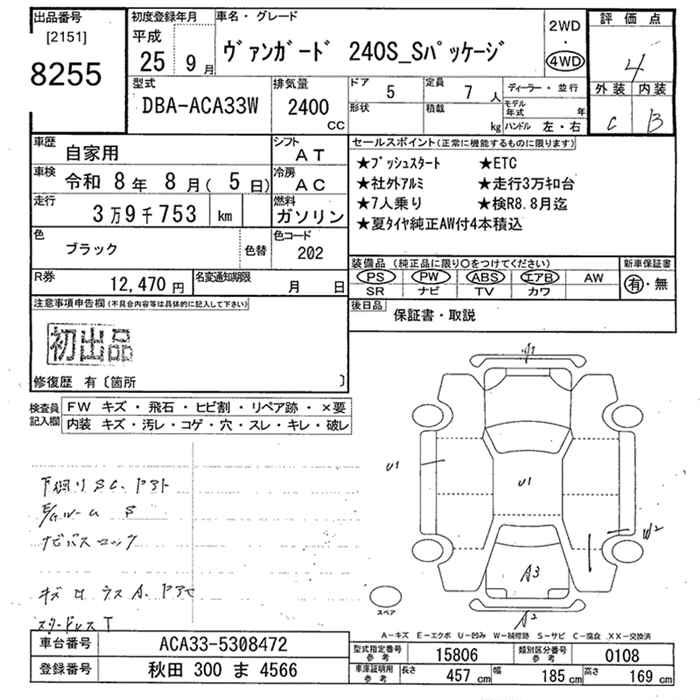 出品番号
[2151]
8255
初度登録年月
平成
25 9 月
車名・グレード
ヴァンガード 240S_Sパッケージ
2WD
・
4WD
評価点
4
外装 内装
C B
型式
DBA-ACA33W
排気量
2400
CC
ドア
5
定員
7 人
形状
積載
kg
ディーラー・並行
モデル年式 年
ハンドル 左・右
車歴
自家用
シフト
AT
車検
令和 8 年 8 月( 5 日)
冷房
AC
走行
3万9千753 km
燃料
ガソリン
色
ブラック
色替
色コード
202
R券
12,470 円
名変通知期限
月 日
セールスポイント(正常に機能するものに限ります)
★プッシュスタート ★ETC
★社外アルミ ★走行3万キロ台
★7人乗り ★検R8.8月迄
★夏タイヤ純正AW付4本積込
装備品(純正品に限り〇をつけてください)
PS PW ABS エアB AW
SR ナビ TV カワ
新車保証書
有・無
後日品
保証書・取説
注意事項申告欄(不具合内容等は具体的に記入して下さい)
初出品
修復歴 有〔箇所 〕
検査員
記入欄
FW キズ・飛石・ヒビ割・リペア跡・×要
内装 キズ・汚レ・コゲ・穴・スレ・キレ・破レ
U1
U1
W2
A3
A2
スペア
A-キズ E-エクボ U-凹み W-補修跡 S-サビ C-腐食 XX-交換済
車台番号
ACA33-5308472
登録番号
秋田 300 ま 4566
型式指定番号
参考
15806
類別区分番号
参考
0108
車庫証明用
参考
長さ 457 cm
幅 185 cm
高さ 169 cm